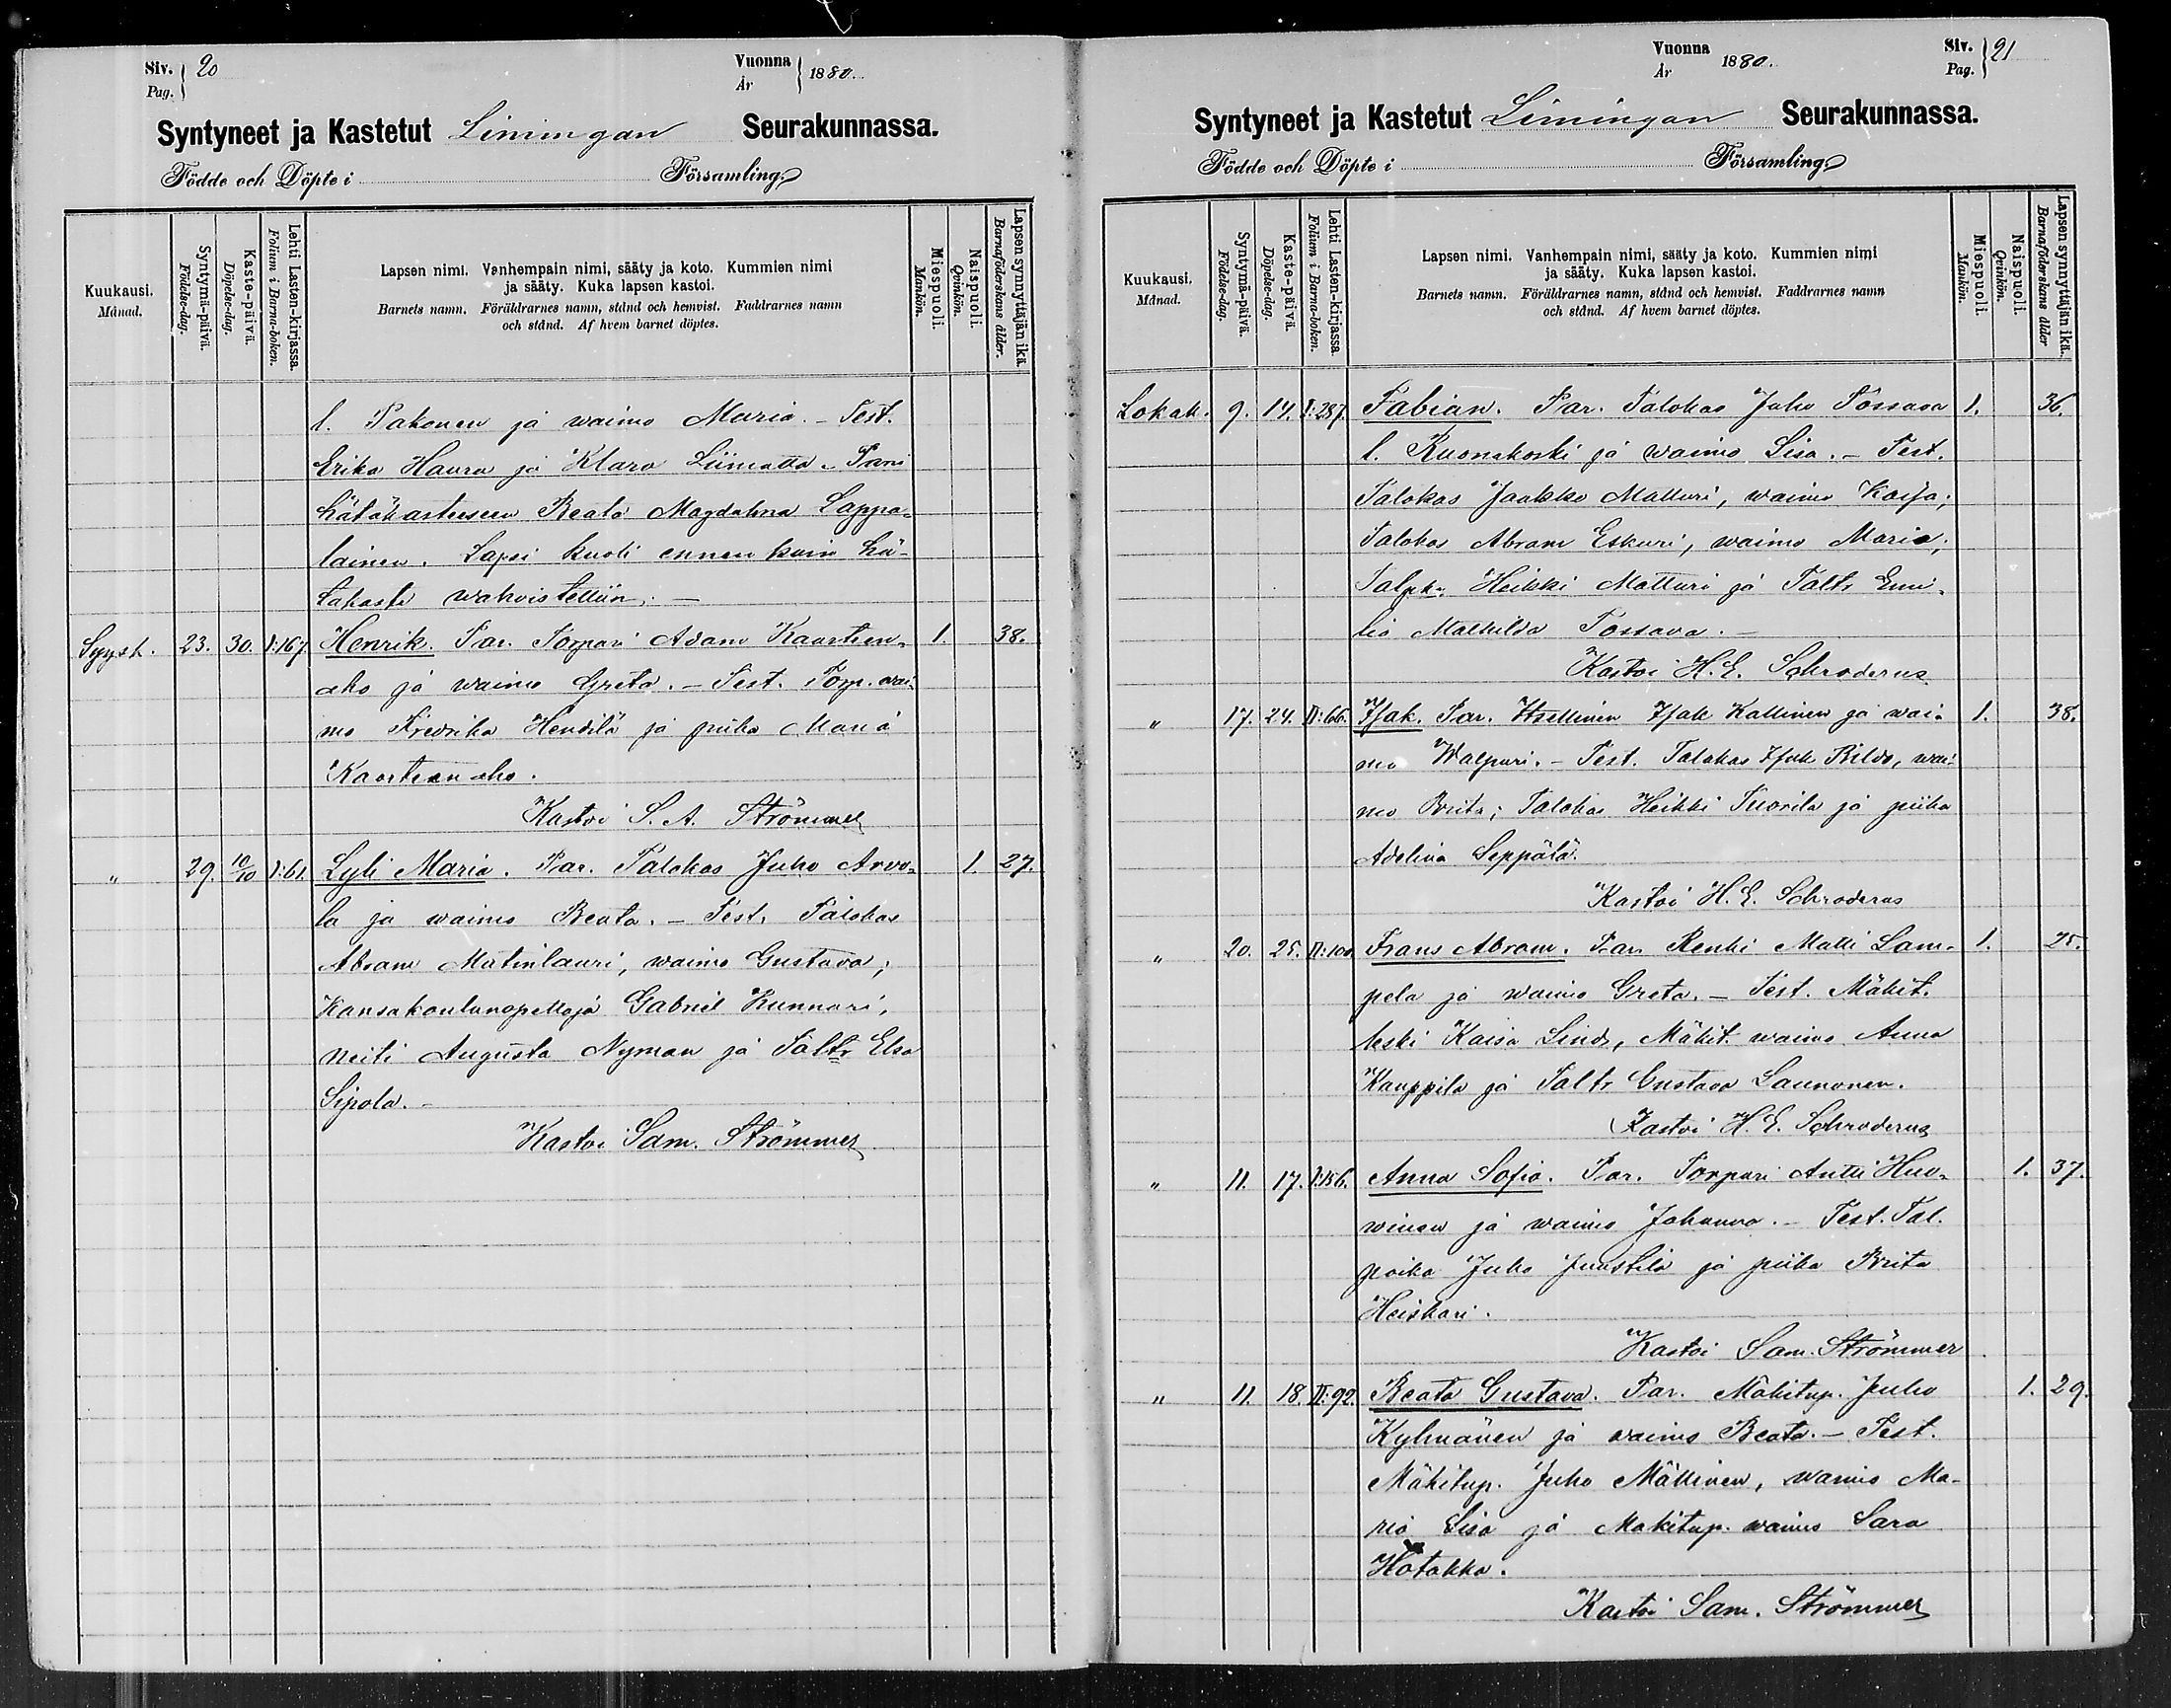 Siv. 20
Pag.
Vuonna
År
1880.
Syntyneet ja Kastetut Limingan Seurakunnassa.
Födde och Döpte i Församling.
Kuukausi.
Månad.
Syntymä-päivä.
Födelse-dag.
Kaste-päivä.
Döpelse-dag.
Lehti Lasten-kirjassa.
Folium i Barna-boken.
Lapsen nimi. Vanhempain nimi, sääty ja koto. Kummien nimi
ja sääty. Kuka lapsen kastoi.
Barnets namn. Föräldrarnes namn, stånd och hemvist. Faddrarnes namn
och stånd. Af hvem barnet döptes.
Miespuoli.
Mankön.
Naispuoli.
Qvinkön.
Lapsen synnyttäjän ikä.
Barnaföderskans ålder.
l. Pakonen ja waimo Maria. - Test.
Erika Haura ja Klara Liimatta. Pani
hätäkasteeseen Beata Magdalena Lappa-
lainen. Lapsi kuoli ennen kuin hä-
täkaste wahwistettiin. -
Syysk. 23. 30. I:167. Henrik. Par. Torpari Adam Kaarteen- 1. 38.
aho ja waimo Greta. - Test. Torp. wai-
mo Fredrika Hendilä ja piika Maria
Kaarteenaho.
Kastoi S. A. Strömmer
" 29. 10/10 I:61. Lyli Maria. Par. Talokas Juho Arvo- 1. 27.
la ja waimo Beata. - Test. Talokas
Abram Matinlauri, waimo Gustava;
Kansakoulunopettaja Gabriel Kunnari,
neiti Augusta Nyman ja Taltr Elsa
Sipola. -
Kastoi Sam. Strömmer
Vuonna
År
1880.
Siv. 21
Pag.
Syntyneet ja Kastetut Limingan Seurakunnassa.
Födde och Döpte i Församling.
Kuukausi.
Månad.
Syntymä-päivä.
Födelse-dag.
Kaste-päivä.
Döpelse-dag.
Lehti Lasten-kirjassa
Folium i Barna-boken.
Lapsen nimi. Vanhempain nimi, sääty ja koto. Kummien nimi
ja sääty. Kuka lapsen kastoi.
Barnets namn. Föräldrarnes namn, stånd och hemvist. Faddrarnes namn
och stånd. Af hvem barnet döptes.
Miespuoli.
Mankön.
Naispuoli.
Qvinkön.
Lapsen synnyttäjän ikä.
Barnaföderskans ålder
Lokak. 9. 14. I:287. Fabian. Par. Talokas Juho Tossava 1. 36.
l. Ruonakoski ja waimo Lisa. - Test.
Talokas Jaakko Matturi, waimo Kaisa;
Talokas Abram Eskuri, waimo Maria;
Talpka Heikki Matturi ja Taltr Emi-
lia Mathilda Tossava. -
Kastoi H. E. Schroderus
" 17. 24. II:66. Isak. Par. Itsellinen Isak Kallinen ja wai- 1. 38.
mo Walpuri. - Test. Talokas Isak Rildo, wai-
mo Brita; Talokas Heikki Tuorila ja piika
Adelina Seppälä.
Kastoi H. E. Schroderus
" 20. 25. II:100. Frans Abram. Par. Renki Matti Lam- 1. 25.
pela ja waimo Greta. - Test. Mäkit.
leski Kaisa Lind, Mäkit. waimo Anna
Kauppila ja Taltr Gustava Launonen.
Kastoi H. E. Schroderus
" 11. 17. I:186. Anna Sofia. Par. Torpari Antti Huo- 1. 37.
winen ja waimo Johanna. - Test. Tal.
poika Juho Juustila ja piika Brita
Heiskari.
Kastoi Sam. Strömmer
" 11. 18. II:92. Beata Gustava. Par. Mäkitup. Juho 1. 29.
Kylmänen ja waimo Beata. - Test.
Mäkitup. Juho Mällinen, waimo Ma-
ria Lisa ja Mäkitup. waimo Sara
Hotakka.
Kastoi Sam. Strömmer